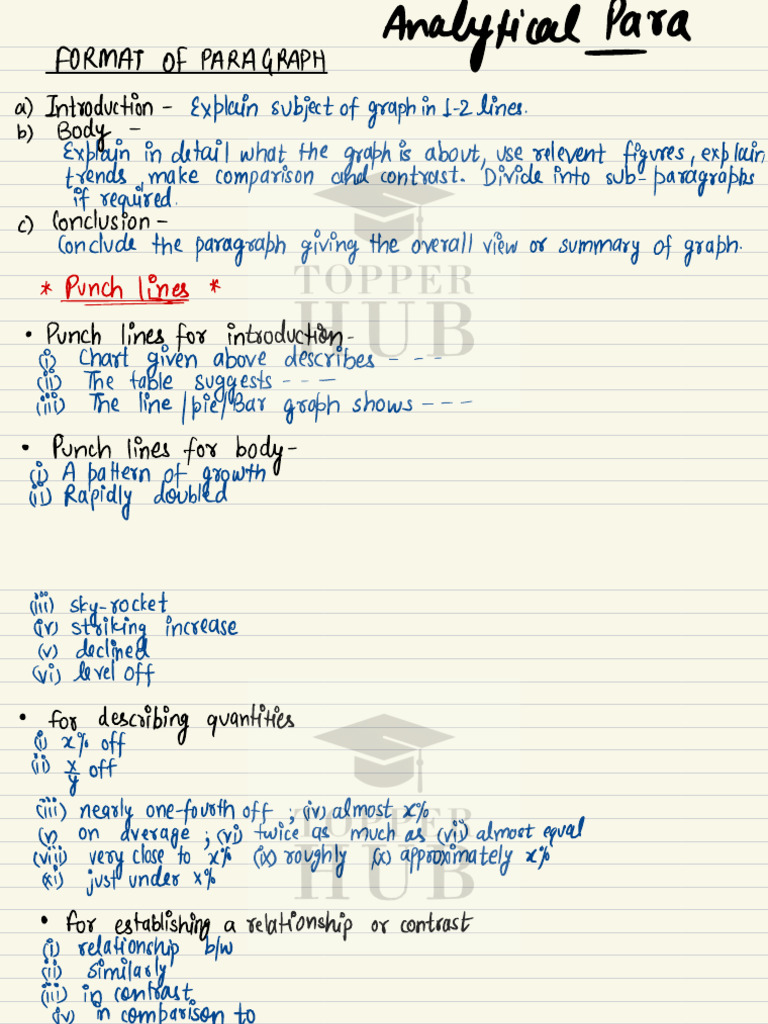 Analytical Para
FORMAT OF PARAGRAPH
a) Introduction - Explain subject of graph in 1-2 lines.
b) Body -
Explain in detail what the graph is about, use relevent figures, explain
trends, make comparison and contrast. Divide into sub-paragraphs
if required.
c) Conclusion -
Conclude the paragraph giving the overall view or summary of graph.
TOPPER
HUB
* Punch lines *
• Punch lines for introduction-
(i) Chart given above describes - - -
(ii) The table suggests - - -
(iii) The line/pie/Bar graph shows - - -
• Punch lines for body-
(i) A pattern of growth
(ii) Rapidly doubled
(iii) sky-rocket
(iv) striking increase
(v) declined
(vi) level off
• for describing quantities
(i) x% off
(ii) x/y off
(iii) nearly one-fourth off ; (iv) almost x%
(v) on average ; (vi) twice as much as (vii) almost equal
(viii) very close to x% (ix) roughly (x) approximately x%
(xi) just under x%
TOPPER
HUB
• for establishing a relationship or contrast
(i) relationship b/w
(ii) similarly
(iii) in contrast
(iv) in comparison to